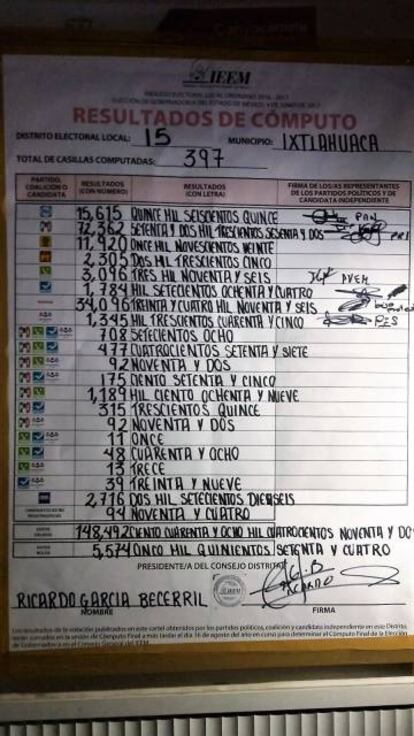 IEEM
PROCESO ELECTORAL LOCAL ORDINARIO 2016 - 2017
ELECCIÓN DE GOBERNADOR/A DEL ESTADO DE MÉXICO, 4 DE JUNIO DE 2017
RESULTADOS DE CÓMPUTO
DISTRITO ELECTORAL LOCAL: 15 MUNICIPIO: IXTLAHUACA
TOTAL DE CASILLAS COMPUTADAS: 397
PARTIDO, COALICIÓN O CANDIDATA RESULTADOS (CON NÚMERO) RESULTADOS (CON LETRA) FIRMA DE LOS/AS REPRESENTANTES DE LOS PARTIDOS POLÍTICOS Y DE CANDIDATA INDEPENDIENTE
15,615 QUINCE MIL SEISCIENTOS QUINCE PAN
72,362 SETENTA Y DOS MIL TRESCIENTOS SESENTA Y DOS PRI
11,920 ONCE MIL NOVESCIENTOS VEINTE
2,305 DOS MIL TRESCIENTOS CINCO
3,096 TRES MIL NOVENTA Y SEIS PVEM
1,784 MIL SETECIENTOS OCHENTA Y CUATRO
34,096 TREINTA Y CUATRO MIL NOVENTA Y SEIS
1,345 MIL TRESCIENTOS CUARENTA Y CINCO PES
708 SETECIENTOS OCHO
477 CUATROCIENTOS SETENTA Y SIETE
92 NOVENTA Y DOS
175 CIENTO SETENTA Y CINCO
1,189 MIL CIENTO OCHENTA Y NUEVE
315 TRESCIENTOS QUINCE
92 NOVENTA Y DOS
11 ONCE
48 CUARENTA Y OCHO
13 TRECE
39 TREINTA Y NUEVE
2,716 DOS MIL SETECIENTOS DIECISEIS
94 NOVENTA Y CUATRO
VOTOS VÁLIDOS 148,492 CIENTO CUARENTA Y OCHO MIL CUATROCIENTOS NOVENTA Y DO
VOTOS NULOS 5,574 CINCO MIL QUINIENTOS SETENTA Y CUATRO
PRESIDENTE/A DEL CONSEJO DISTRITAL
RICARDO GARCIA BECERRIL
NOMBRE FIRMA
Los resultados de la votación publicados en este cartel obtenidos por los partidos políticos, coalición y candidata independiente en este Distrito,
serán sumados en la sesión de Cómputo Final a más tardar el 16 de agosto del año en curso para determinar el Cómputo Final de la Elección
de Gobernador/a en el Consejo General del IEEM.